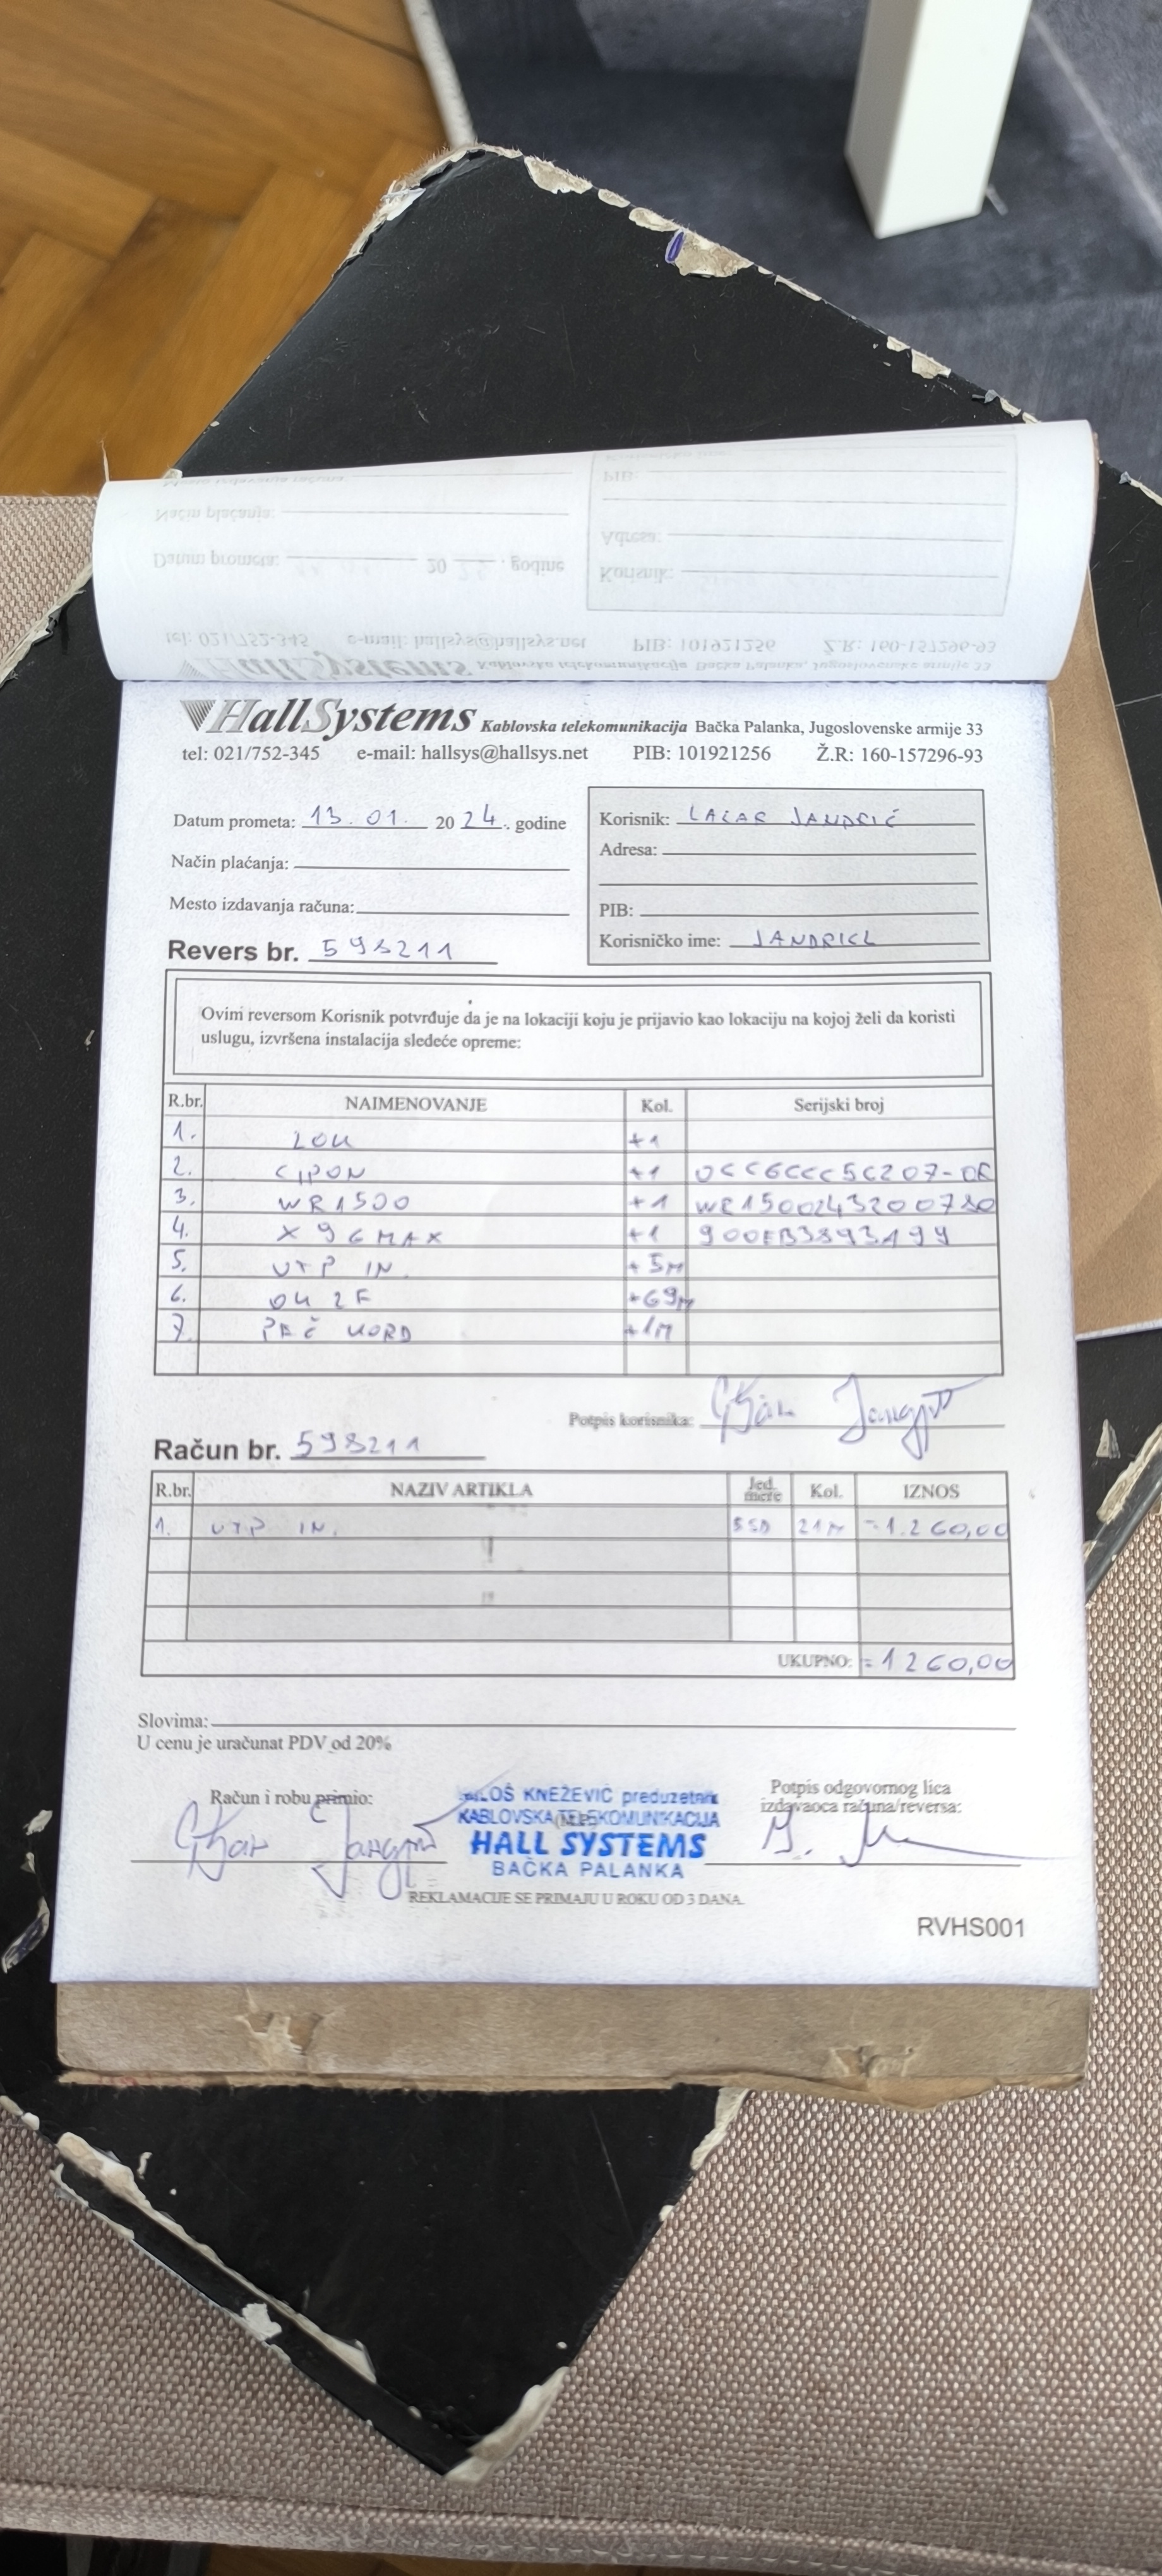 HallSystems Kablovska telekomunikacija Bačka Palanka, Jugoslovenske armije 33
tel: 021/752-345 e-mail: hallsys@hallsys.net PIB: 101921256 Ž.R: 160-157296-93
Datum prometa: 13.01. 2024. godine
Način plaćanja:
Mesto izdavanja računa:
Korisnik: LAZAR JANDRIĆ
Adresa:
PIB:
Korisničko ime: JANDRICL
Revers br. 598211
Ovim reversom Korisnik potvrđuje da je na lokaciji koju je prijavio kao lokaciju na kojoj želi da koristi
uslugu, izvršena instalacija sledeće opreme:
R.br. NAIMENOVANJE Kol. Serijski broj
1. ZOK +1
2. +1
3. WR1500 +1
4. X96MAX +1
5. UTP IN. +5M
6. OK 2F +69M
7. PAČ KORD +1M
Potpis korisnika:
Račun br. 598211
R.br. NAZIV ARTIKLA Jed. mere Kol. IZNOS
1. UTP IN. 21M =1.260,00
UKUPNO: =1260,00
Slovima:
U cenu je uračunat PDV od 20%
Račun i robu primio:
MILOŠ KNEŽEVIĆ preduzetnik
KABLOVSKA TELEKOMUNIKACIJA
HALL SYSTEMS
BAČKA PALANKA
Potpis odgovornog lica
izdavaoca računa/reversa:
REKLAMACIJE SE PRIMAJU U ROKU OD 3 DANA.
RVHS001